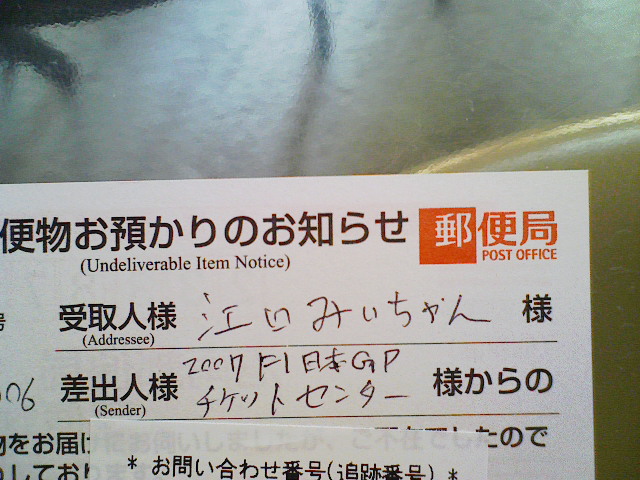 便物お預かりのお知らせ 郵便局
(Undeliverable Item Notice) POST OFFICE
受取人様 江口みいちゃん 様
(Addressee)
差出人様 2007 F1 日本GP チケットセンター 様からの
(Sender)
06
物をお届け
たので
* お問い合わせ番号(追跡番号) *
しており